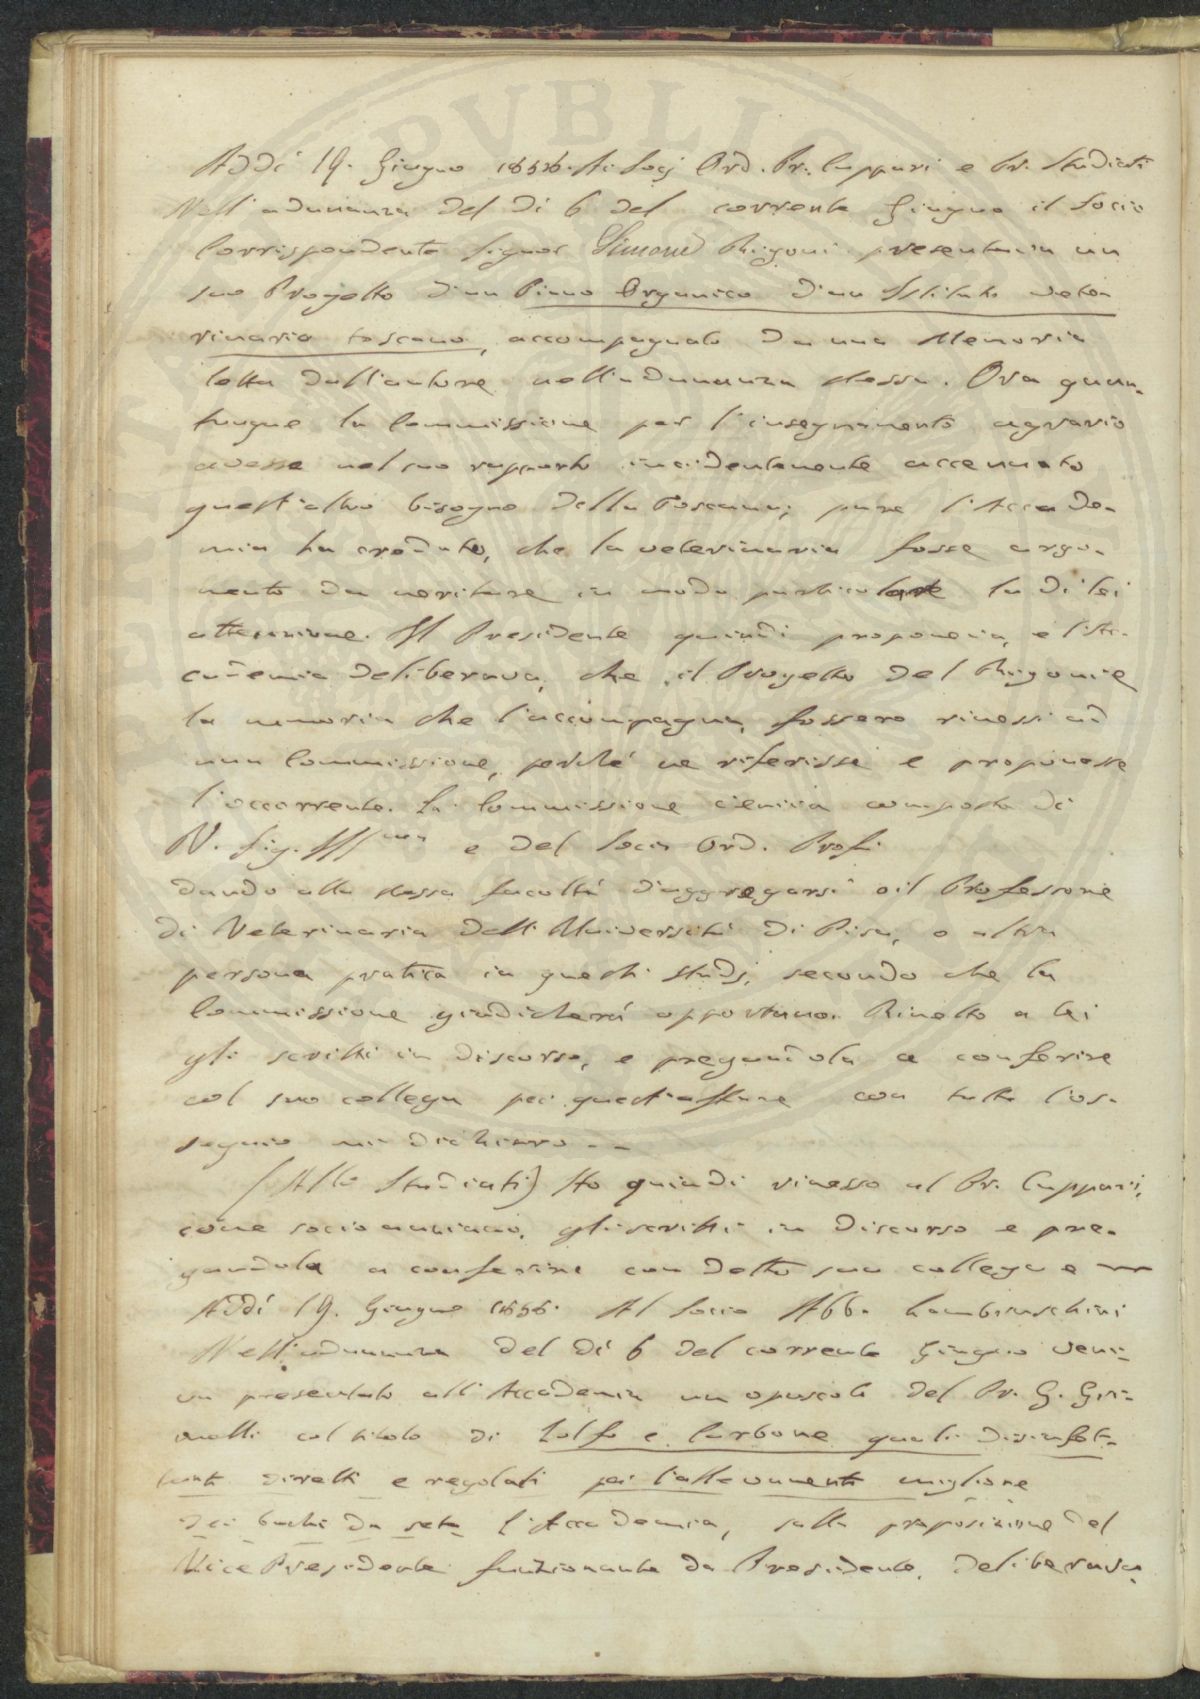 Addì 19. Giugno 1856. Ai Socj Ord. Pr. Cuppari e Pr. Studiati
Nell'adunanza del dì 6 del corrente Giugno il Socio
Corrispondente Signor Simone Rigoni presentava un
suo Progetto d'un Piano Organico d'un Istituto vete-
rinario toscano, accompagnato da una Memoria
letta dall'autore nell'adunanza stessa. Ora quan-
tunque la Commissione per l'insegnamento agrario
avesse nel suo rapporto incidentemente accennato
quest'altro bisogno della Toscana; pure l'Accade-
mia ha creduto, che la veterinaria fosse argo-
mento da meritare in modo particolare la di lei
attenzione. Il Presidente quindi proponeva, e l'Ac-
cademia deliberava, che il Progetto del Rigoni e
la memoria che l'accompagna, fossero rimessi ad
una Commissione, perché ne riferisse e proponesse
l'occorrente. La Commissione veniva composta di
V. Sig. Ill.ma e del Socio Ord. Prof.
dando alla stessa facoltà d'aggregarsi o il Professore
di Veterinaria dell'Università di Pisa, o altra
persona pratica in questi studj, secondo che la
Commissione giudicherà opportuno. Rimetto a lei
gli scritti in discorso, e pregandola a conferire
col suo collega per quest'affare con tutto l'os-
sequio mi dichiaro - -
(Allo Studiati) Ho quindi rimesso al Pr. Cuppari,
come socio anziano, gli scritti in discorso e pre-
gandola a conferire con detto suo collega e
Addì 19. Giugno 1856. Al Socio Abb. Lambruschini
Nell'adunanza del dì 6 del corrente Giugno veni-
va presentato all'Accademia un opuscolo del Pr. G. Gri-
melli col titolo di Zolfo e Carbone quali disinfet-
tanti diretti e regolati per l'allevamento migliore
dei bachi da seta. L'Accademia, sulla proposizione del
Vice Presidente funzionante da Presidente, deliberava,